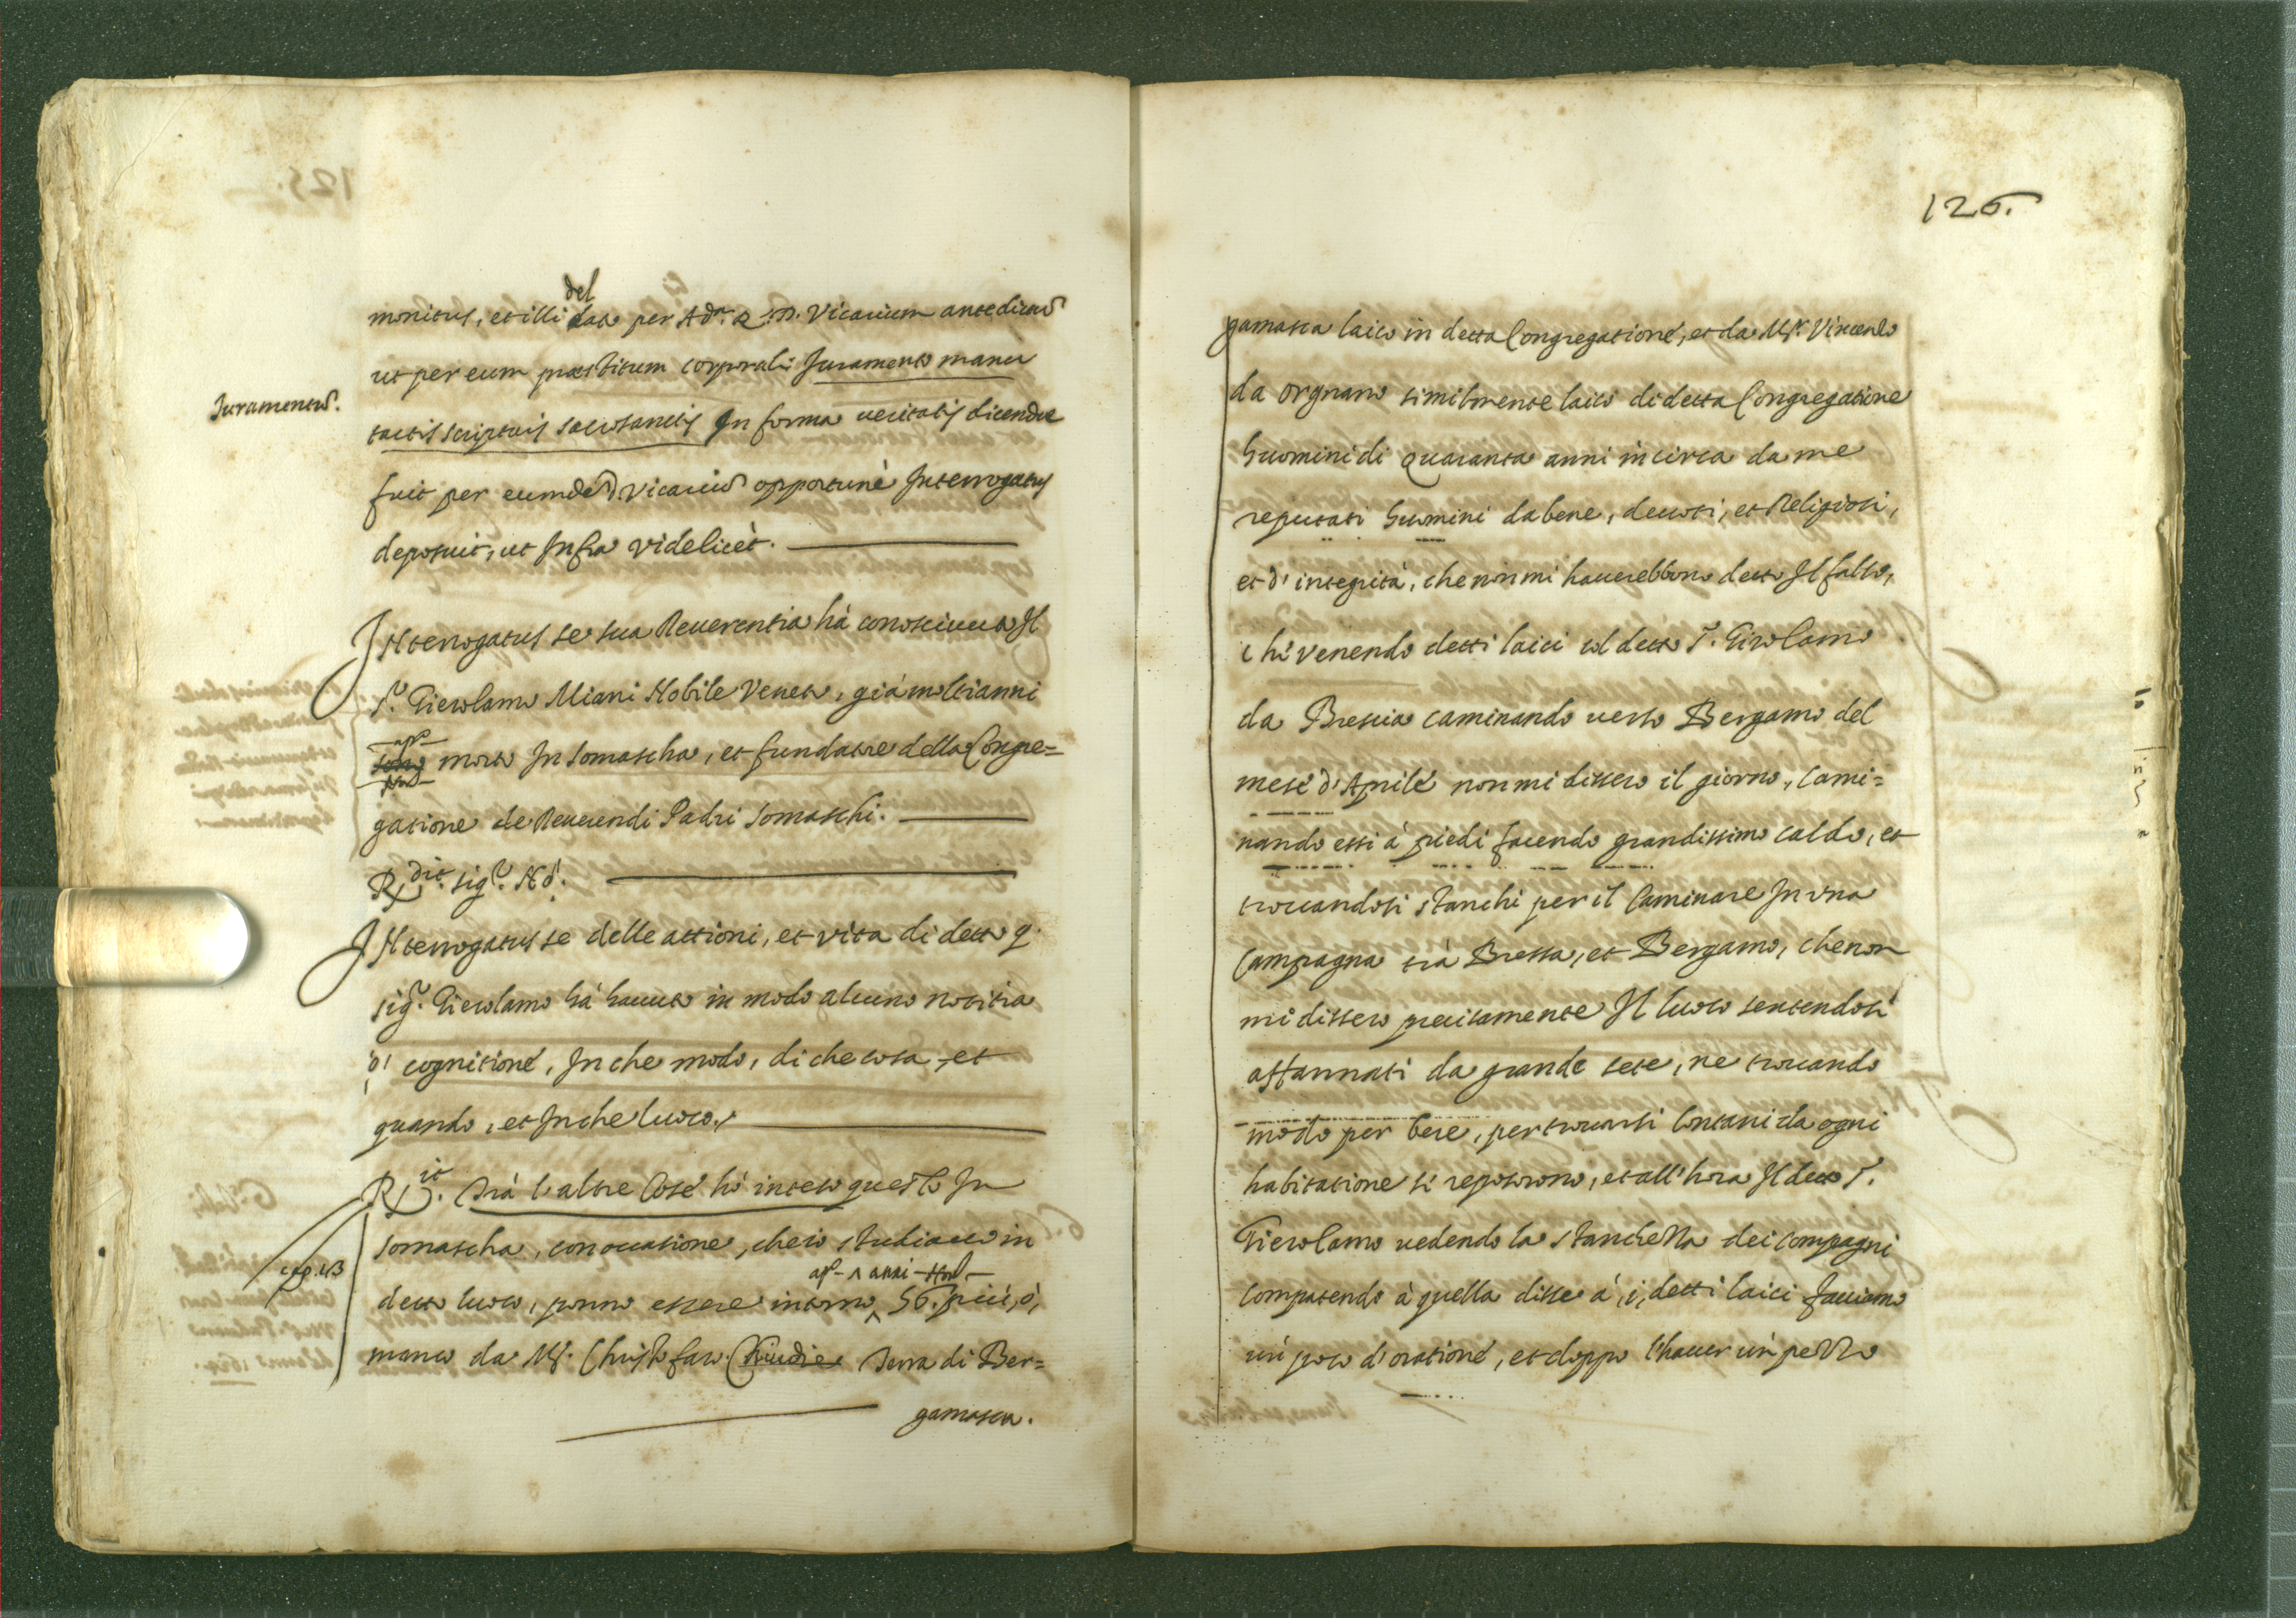 del
monitus, et illi dato per Adm. R. D. Vicarium antedictũ
ut per eum præstitum corporali Juramento manu
Juramentũ.
tactis scripturis sacrosanctis In forma veritatis dicendæ
fuit per eumdẽ D Vicariũ opportunè Interrogatus
deposuit, ut Infra videlicèt.
INterrogatus se sua Reverentia hà conosciuto Il
S.r Gierolamo Miani Nobile Veneto, già molti anni
morto In Somascha, et fundatore della Congre=
gatione de Reverendi Padri Somaschi.
R.dit sig.r Nò.
INterrogatus se delle attioni, et vita di detto q.
sig.r Gierolamo hà havuto in modo alcuno notitia
ò cognitione, In che modo, di che cosa, et
quando, et In che luoco.
R.it Trà l'altre Cose hò inteso questo In
Somascha, con occasione, che io studiavo in
cap. 13
anni
detto luoco, ponno essere intorno 56. più, ò,
manco da Ms. Christofaro Terra di Ber=
gamasca.
126.
gamasca laico in detta Congregatione, et da Ms. Vincenzo
da Orgnano similmente laico di detta Congregatione
huomini di Quaranta anni in circa da me
reputati huomini da bene, devoti, et Religiosi,
et d'integrità, che non mi haverebbono detto Il falso,
che venendo detti laici col detto S. Girolamo
da Brescia caminando verso Bergamo del
mese d'Aprile non mi dissero il giorno, Cami=
nando essi à piedi facendo grandissimo caldo, et
trovandosi stanchi per il Caminare In una
Campagna trà Bressa, et Bergamo, che non
mi dissero precisamente Il luoco sentendosi
affannati da grande sete, ne trovando
modo per bere, per trovarsi lontani da ogni
habitatione si reposorono, et all'hora Il detto S.
Gierolamo vedendo la stanchezza dei compagni
Compatendo à quella disse à, i, detti laici facciamo
un poco d'oratione, et doppo l'haver un pezzo